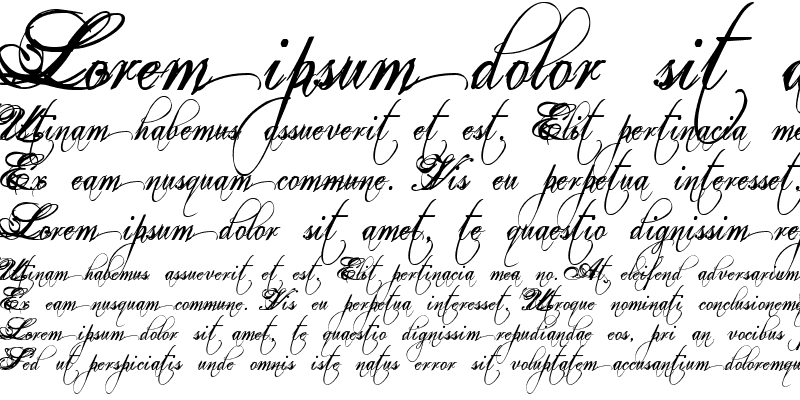 Lorem ipsum dolor sit
Utinam habemus assueverit et est. Elit pertinacia me
Ex eam nusquam commune. Vis eu perpetua interesset.
Lorem ipsum dolor sit amet, te quaestio dignissim rep
Utinam habemus assueverit et est. Elit pertinacia mea no. At eleifend adversarium
Ex eam nusquam commune. Vis eu perpetua interesset. Utroque nominati conclusionem
Lorem ipsum dolor sit amet, te quaestio dignissim repudiandae eos, pri an vocibus
Sed ut perspiciatis unde omnis iste natus error sit voluptatem accusantium doloremqu